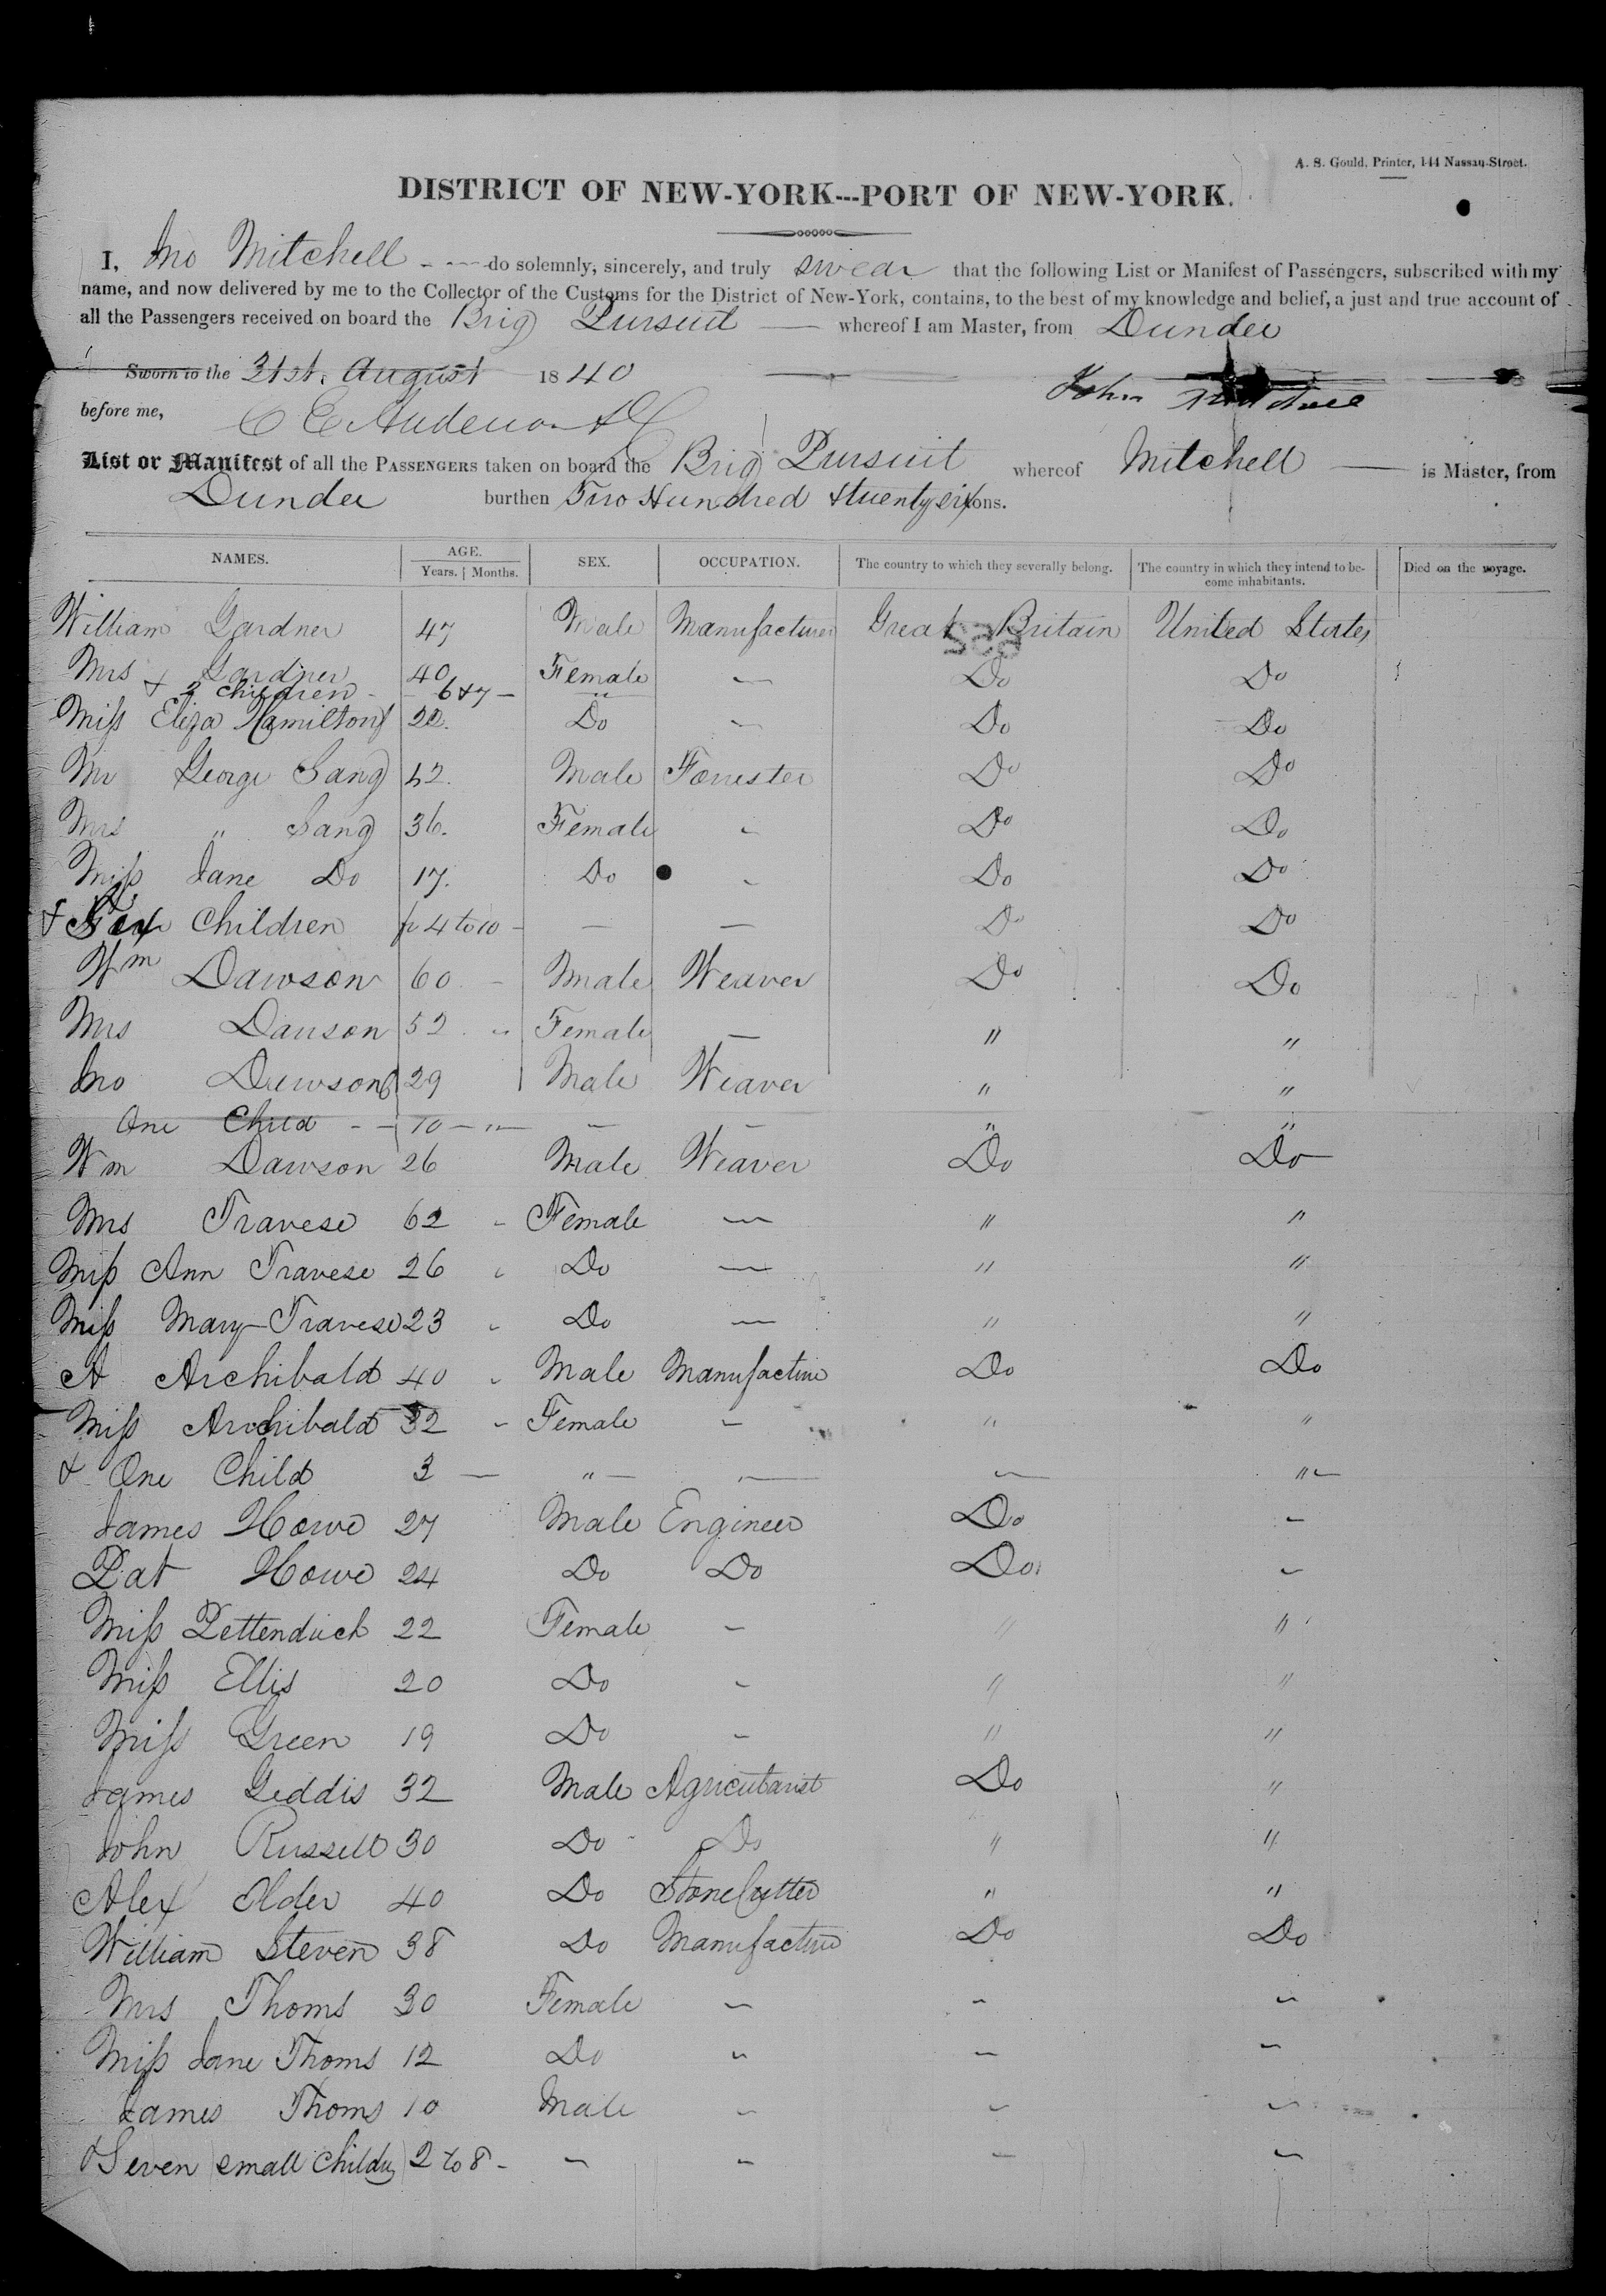 A. S. Gould, Printer, 144 Nassau-Street.
DISTRICT OF NEW-YORK---PORT OF NEW-YORK.
I, Jno Mitchell do solemnly, sincerely, and truly swear that the following List or Manifest of Passengers, subscribed with my
name, and now delivered by me to the Collector of the Customs for the District of New-York, contains, to the best of my knowledge and belief, a just and true account of
all the Passengers received on board the Brig Pursuit whereof I am Master, from Dundee
Sworn to the 31st. August 1840
John Mitchell
before me,
List or Manifest of all the PASSENGERS taken on board the Brig Pursuit whereof Mitchell is Master, from
Dundee burthen Two Hundred & twenty six tons.
NAMES. AGE. SEX. OCCUPATION. The country to which they severally belong. The country in which they intend to be- Died on the voyage.
Years. Months. come inhabitants.
William Gardner 47 Male Manufacturer Great Britain United States
Mrs Gardner 40 Female — Do Do
& 2 Children - - 6 & 7 — "
Miss Eliza Hamilton 22. Do — Do Do
Mr George Sang 42. Male Forrester Do Do
Mrs " Sang 36. Female - Do Do
Miss Jane Do 17. Do - Do Do
& Six Children fr 4 to 10 - — — Do Do
Wm Dawson 60 - Male Weaver Do Do
Mrs Dawson 52 " Female — " "
Jno Dawson 29 Male Weaver " "
One Child - - 10 — " — — — " "
Wm Dawson 26 Male Weaver Do Do
Mrs Travese 62 - Female — " "
Miss Ann Travese 26 " Do — " "
Miss Mary Travese 23 " Do — " "
A Archibald 40 " Male Manufacture Do Do
Miss Archibald 32 - Female - " "
& One Child 3 — " — — — " —
James Howe 27 Male Engineer Do -
Pat Howe 24 Do Do Do -
Miss Pettendrich 22 Female - " "
Miss Ellis 20 Do - " "
Miss Green 19 Do - " "
James Geddis 32 Male Agricultarist Do "
John Russell 30 Do Do " "
Alex Elder 40 Do Stone Cutter " "
William Steven 38 Do Manufacture Do Do
Mrs Thoms 30 Female - - -
Miss Jane Thoms 12 Do - - -
James Thoms 10 Male - - -
& Seven small Childn 2 to 8 - - - - -